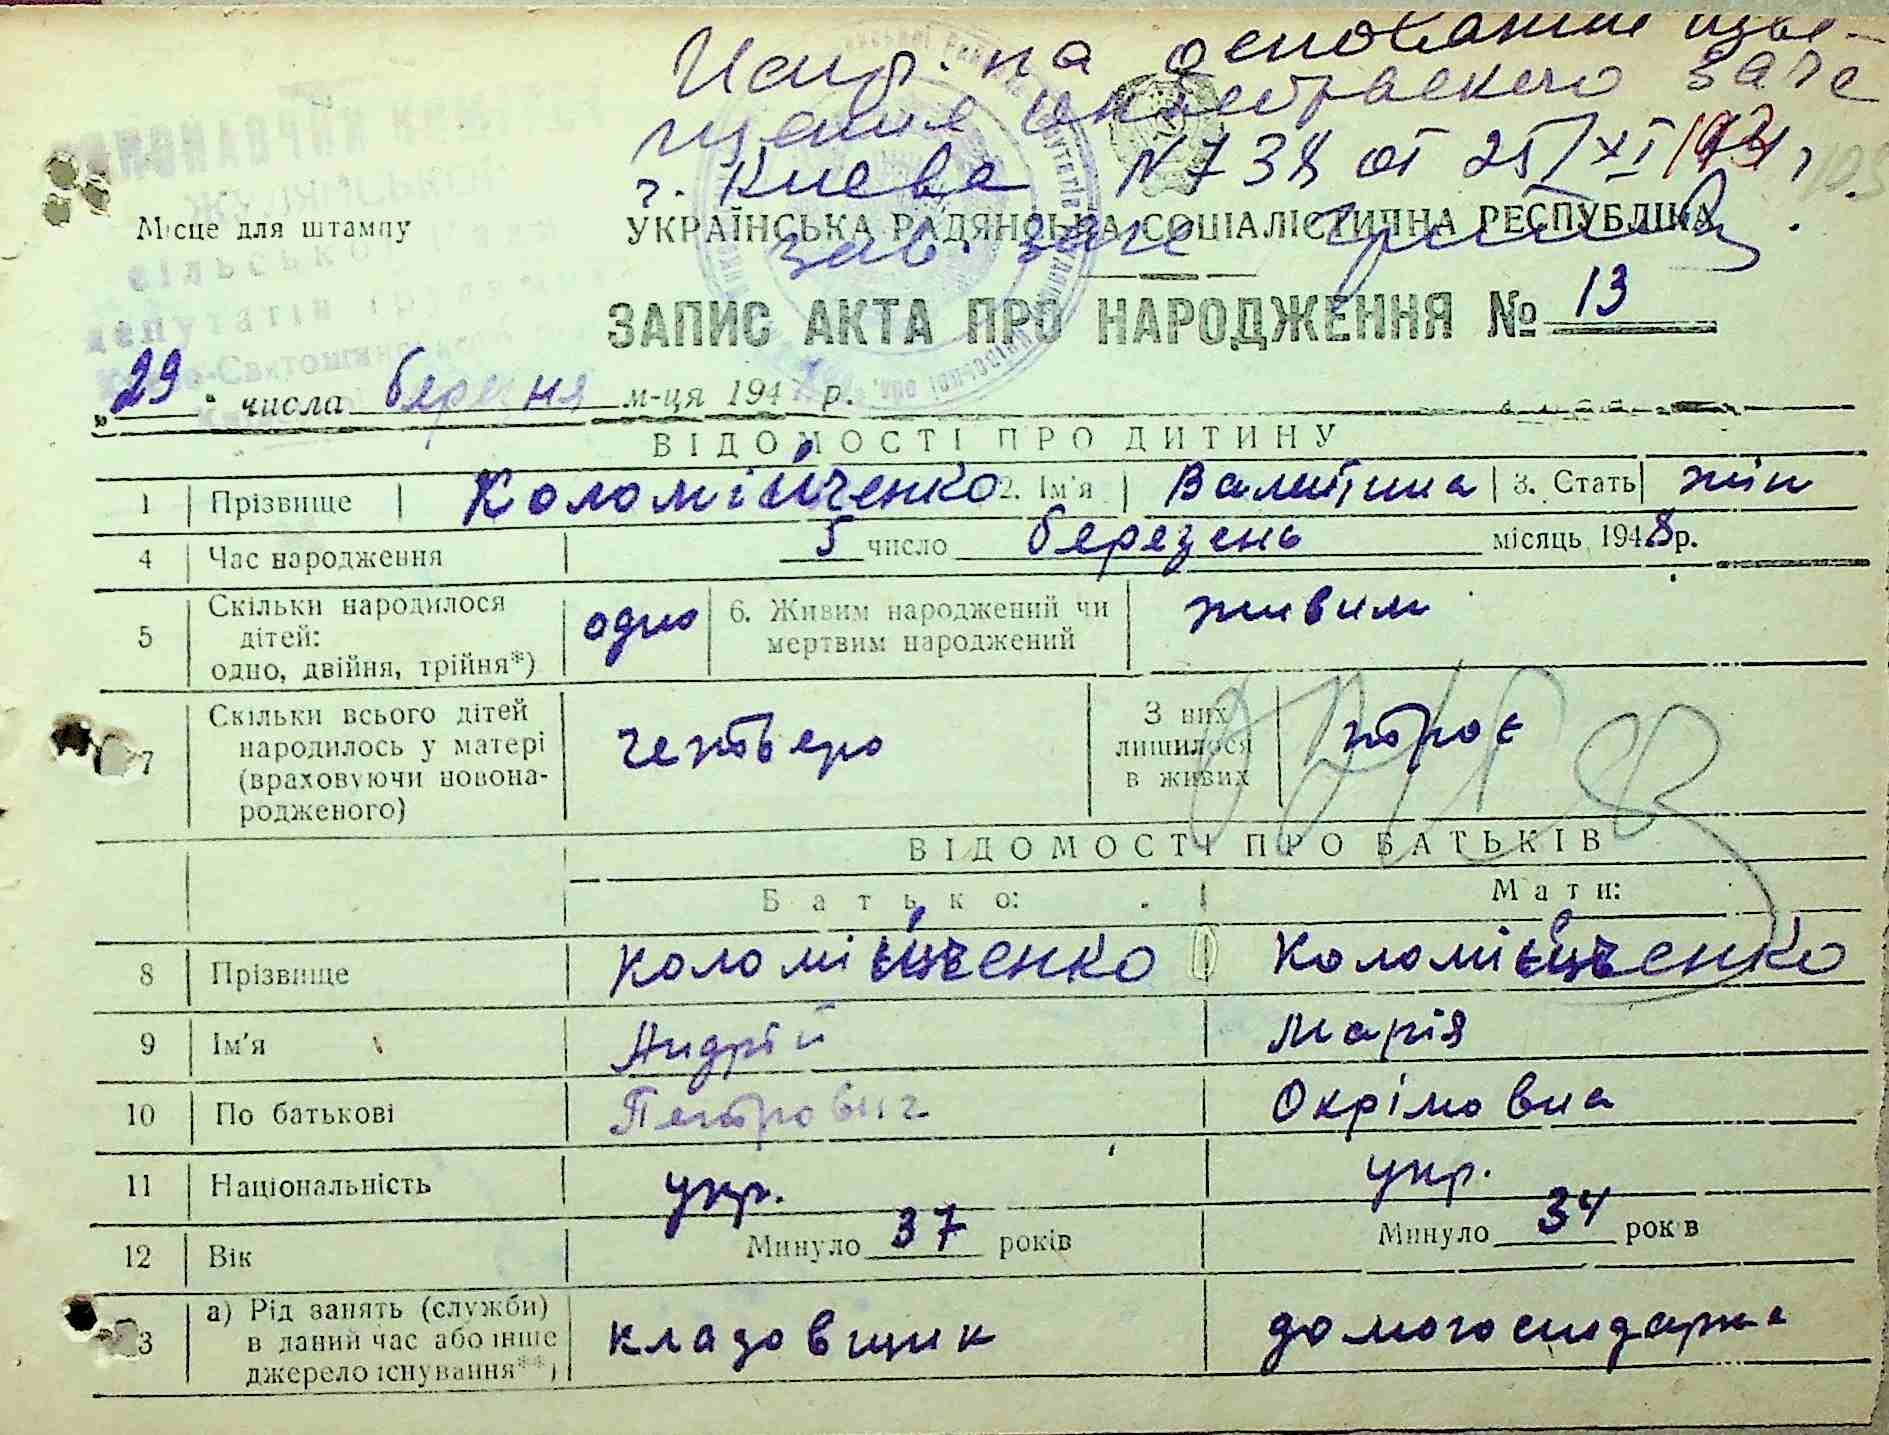 Испр. на основании изве-
щения Октябрьского загс
г. Киева № 738 от 25/XI
зав. загс
Місце для штампу
УКРАЇНСЬКА РАДЯНСЬКА СОЦІАЛІСТИЧНА РЕСПУБЛІКА
ЗАПИС АКТА ПРО НАРОДЖЕННЯ № 13
„29" числа березня м-ця 194 р.
ВІДОМОСТІ ПРО ДИТИНУ
1 Прізвище Коломійченко 2. Ім'я Валентина 3. Стать жін
4 Час народження 5 число березень місяць 1948 р.
5 Скільки народилося дітей: одно, двійня, трійня*) одно 6. Живим народжений чи мертвим народжений живим
7 Скільки всього дітей народилось у матері (враховуючи новонародженого) четверо З них лишилося в живих троє
ВІДОМОСТІ ПРО БАТЬКІВ
Батько: Мати:
8 Прізвище Коломійченко Коломійченко
9 Ім'я Андрій Марія
10 По батькові Петрович Окрімовна
11 Національність укр. укр.
12 Вік Минуло 37 років Минуло 34 років
13 а) Рід занять (служби) в даний час або інше джерело існування**) кладовщик домогосподарка